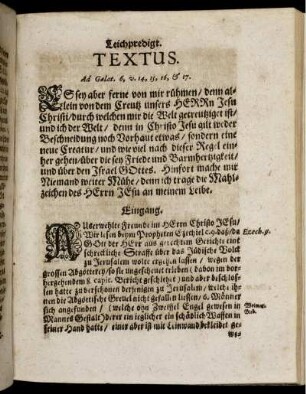 Leichpredigt.
TEXTUS.
Ad Galat. 6, v. 14, 15, 16, & 17.
ES sey aber ferne von mir rühmen / denn al-
lein von dem Creutz unsers HERRn Jesu
Christi / durch welchen mir die Welt gecreutziget ist /
und ich der Welt / denn in Christo Jesu gilt weder
Beschneidung noch Vorhaut etwas / sondern eine
neue Creatur / und wie viel nach dieser Regel ein-
her gehen / über die sey Friede und Barmhertzigkeit /
und über den Israel GOttes. Hinfort mache mir
Niemand weiter Mühe / denn ich trage die Mahl-
zeichen des HErrn JEsu an meinem Leibe.
Eingang.
AUserwehlte Freunde im HErrn Christo JEsu /
Wir lesen beym Propheten Ezechiel c. 9. daß / da
GOtt der HErr aus gerechtem Gerichte eine
schreckliche Straffe über das Jüdische Volck
zu Jerusalem wolte ergehen lassen / wegen der
grossen Abgötterey / so sie ungescheuet trieben (davon im vor-
hergehendem 8. capit. Bericht geschiehet) und aber beschlos-
sen hatte zu verschonen derjenigen zu Jerusalem / welche ih-
nen die Abgöttische Greuel nicht gefallen liessen / 6. Männer
sich angefunden / (welche ohn Zweiffel Engel gewesen in
Mannes Gestalt) derer ein ieglicher ein schädlich Waffen in
seiner Hand hatte / einer aber ist mit Leinwand bekleidet ge-
Ezech. 9.
Weimar.
Bib.